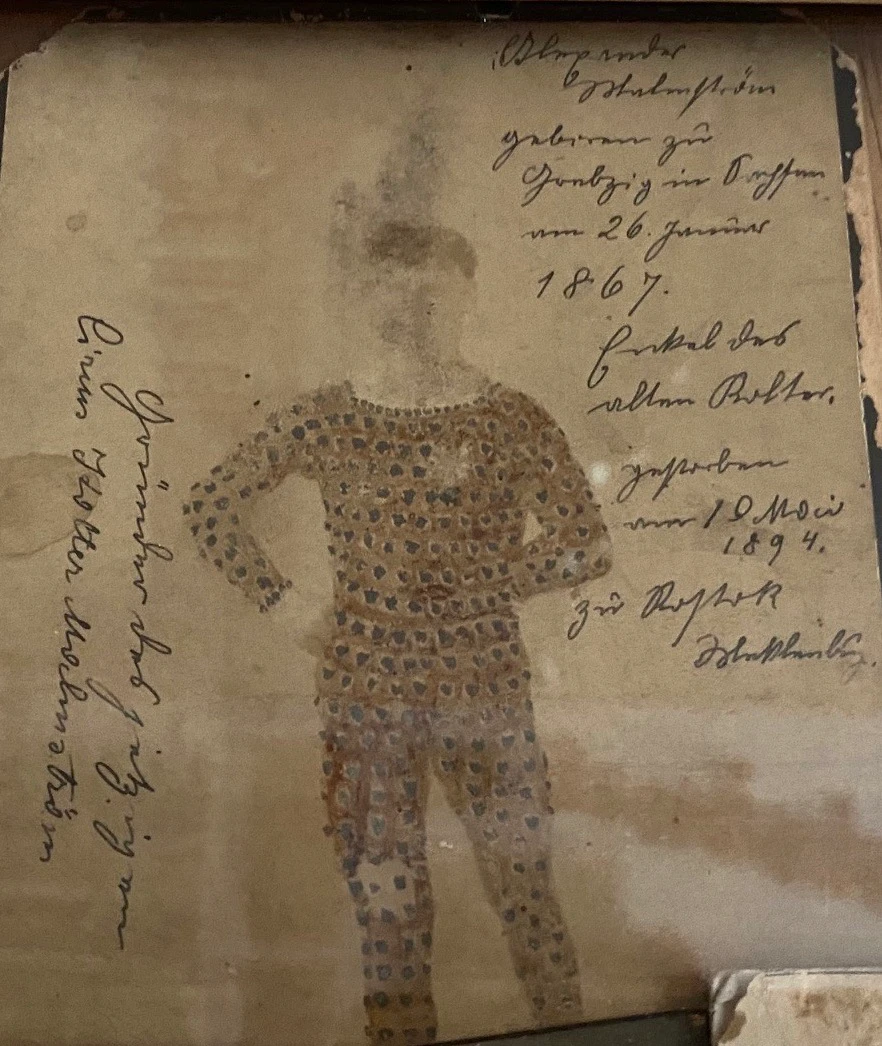 Alexander
Malmström
geboren zu
in Sachsen
am 26. Januar
1867.
Enkel des
alten Kolter.
gestorben
am 10 Mai
1894.
zu Rostok
Meklenburg.
Gründer des jetzigen
Circus Kolter Malmström